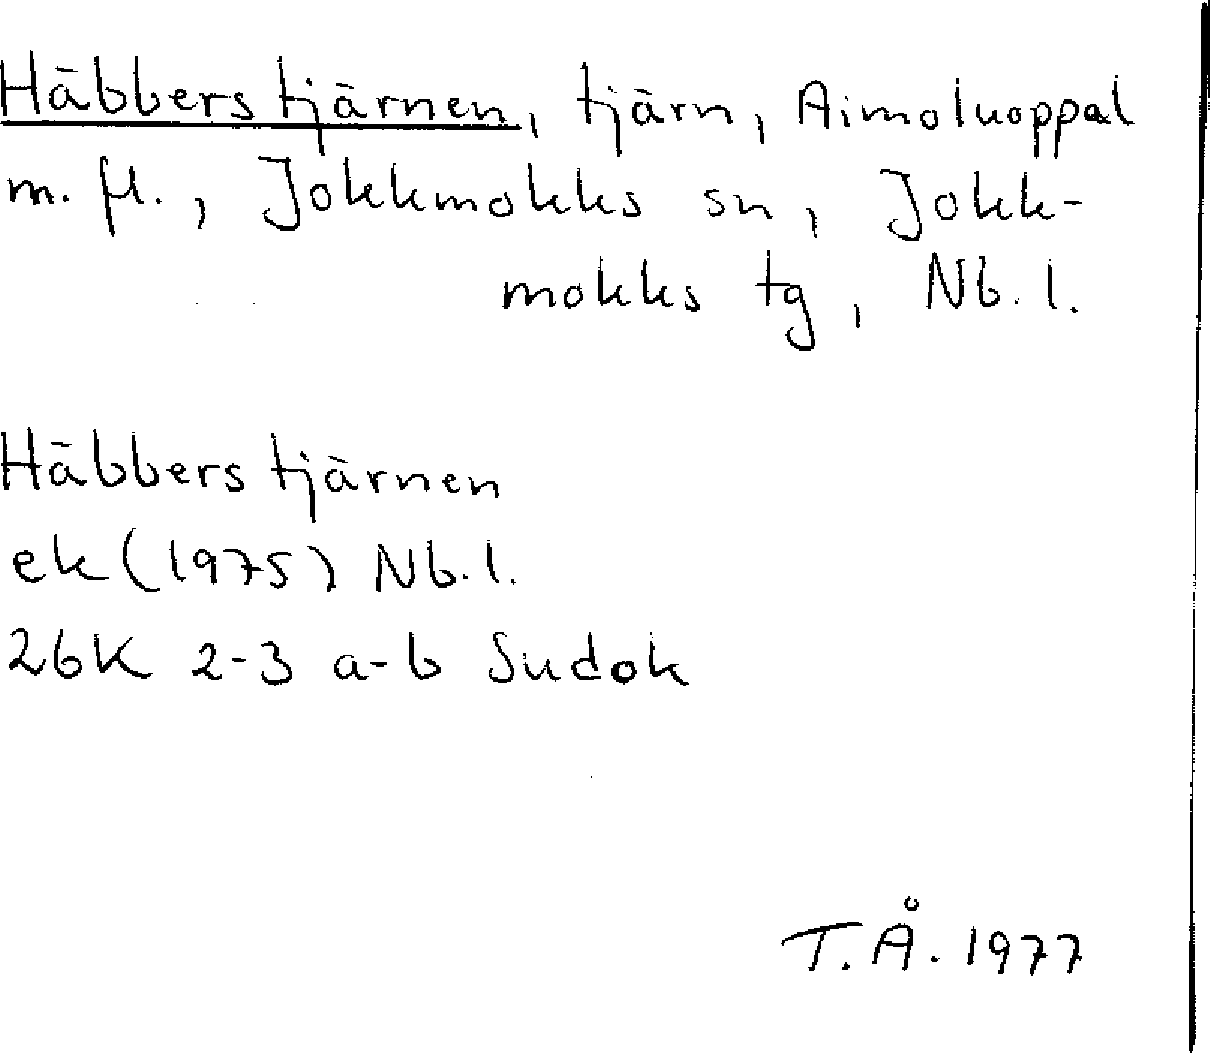 Häbberstjärnen, tjärn, Aimoluoppal
m. fl., Jokkmokks sn, Jokk-
mokks tg, Nb. l.
Häbberstjärnen
ek (1975) Nb. l.
26K 2-3 a-b Sudok
T. Å. 1977